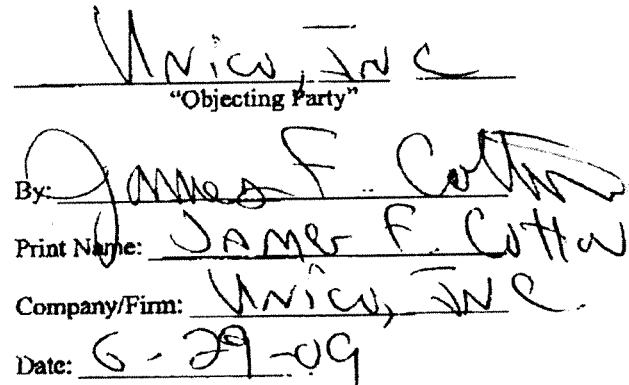 Unico, INC
"Objecting Party"
By: James F. Cotton
Print Name: James F. Cotton
Company/Firm: Unico, INC.
Date: 6-29-09